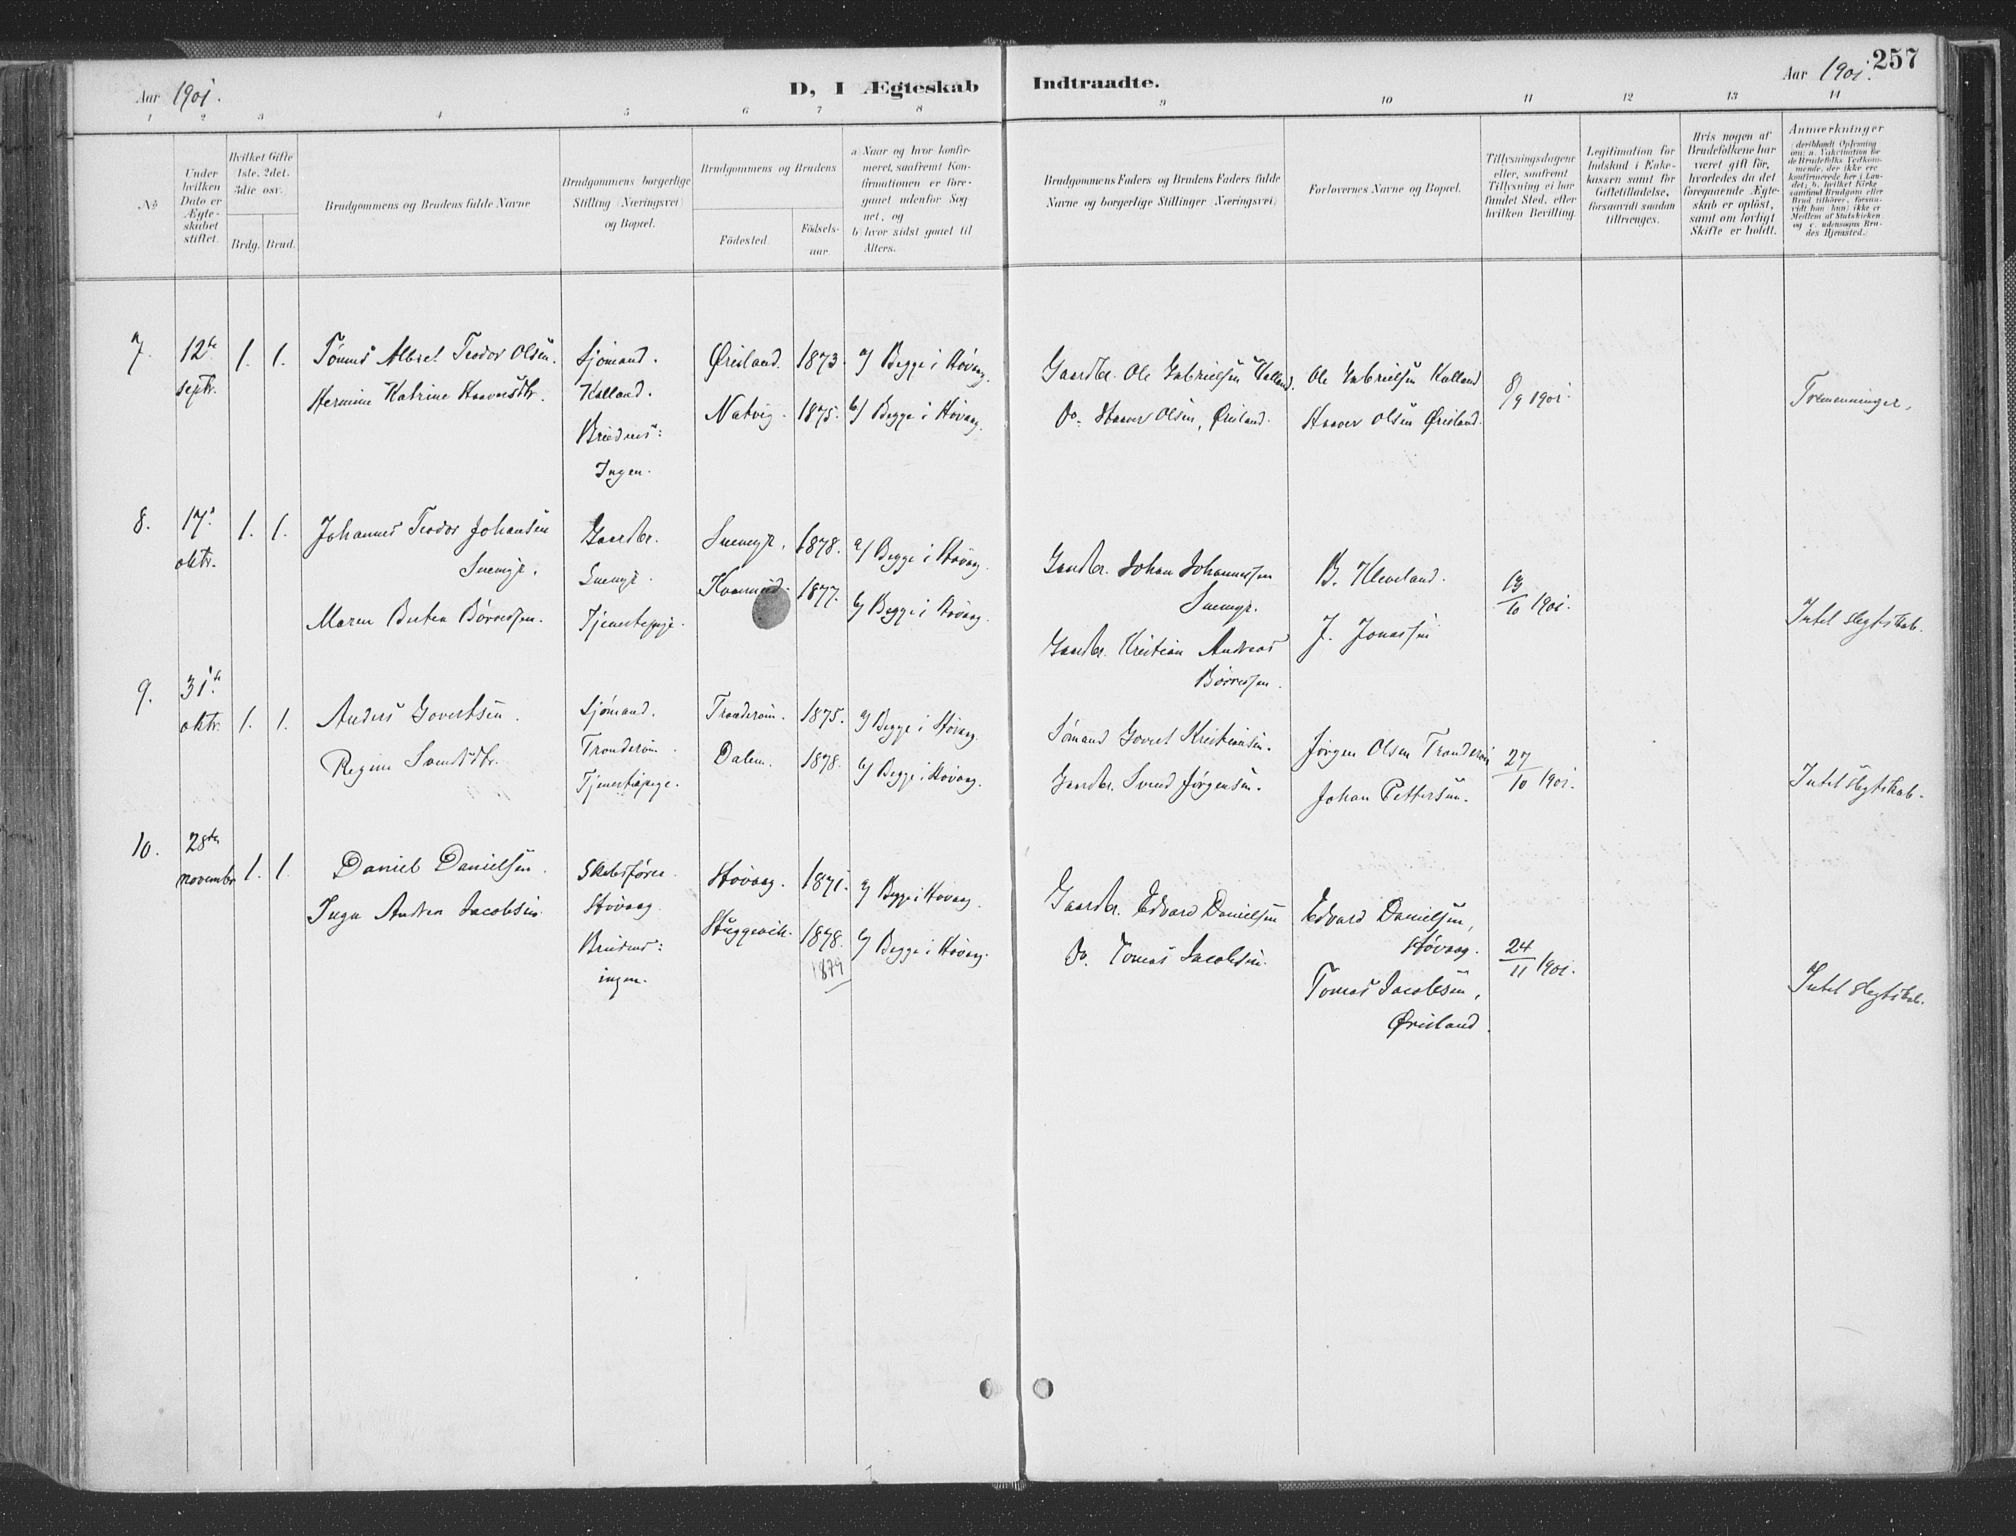 257
Aar 1901.
D, I Ægteskab Indtraadte.
Aar 1901.
1 2 3 4 5 6 7 8 9 10 11 12 13 14
No
Under hvilken Dato er Ægteskabet stiftet.
Hvilket Gifte 1ste, 2det, 3die osv.
Brdg. Brud.
Brudgommens og Brudens fulde Navne
Brudgommens borgerlige Stilling (Næringsvei) og Bopæl.
Brudgommens og Brudens
Födested.
Födselsaar
a Naar og hvor konfirmeret, saafremt Konfirmationen er foregaaet udenfor Sognet, og
b hvor sidst gaaet til Alters.
Brudgommens Faders og Brudens Faders fulde Navne og borgerlige Stillinger (Næringsvei)
Forlovernes Navne og Bopæl.
Tillysningsdagene eller, saafremt Tillysning ei har fundet Sted, efter hvilken Bevilling.
Legitimation for Indskud i Enkekassen samt for Giftetilladelse, forsaavidt saadan tiltrænges.
Hvis nogen af Brudefolkene har været gift för, hvorledes da det foregaaende Ægteskab er oplöst, samt om lovligt Skifte er holdt.
Anmærkninger
(deriblandt Oplysning om: a. Vakcination for de Brudefolks Vedkommende, der ikke ere konfirmerede her i Landet; b. hvilket Kirkesamfund Brudgom eller Brud tilhörer, forsaavidt han (hun) ikke er Medlem af Statskirken, og c. udensogns Brudes Hjemsted.
7. 12te septr. 1. 1.
Tønnes Albret Teodor Olsen.
Hermine Katrine Haaversdtr.
Sjömand.
Kalland.
Brudens:
Ingen.
Øresland. 1873.
Natvig. 1875.
a/ Begge i Høvaag.
b/ Begge i Høvaag.
Gaardbr. Ole Gabrielsen Kalland.
Do. Haaver Olsen, Øresland.
Ole Gabrielsen Kalland
Haaver Olsen Øresland.
8/9 1901.
Tremenninger.
8. 17. oktr. 1. 1.
Johannes Teodor Johansen
Snemyr.
Maren Bertea Börresen.
Gaardbr.
Snemyr.
Tjenestepige.
Snemyr. 1878.
1877.
a/ Begge i Høvaag.
b/ Begge i Høvaag.
Gaardbr. Johan Johannessen
Snemyr.
Gaardbr. Kristian Andreas
Børresen.
B. Kleveland.
J. Jonassen
13/10 1901.
Intet slegtskab.
9. 31te oktr. 1. 1.
Anders Govertsen.
Regine Svendsdtr.
Sjömand.
Tronderöin.
Tjenestepige.
Tronderöin. 1875.
Dalen. 1878.
a/ Begge i Høvaag.
b/ Begge i Høvaag.
Sømand Govert Kristiansen.
Gaardbr. Svend Jørgensen.
Jørgen Olsen Tronderöin
Johan Pettersen.
27/10 1901.
Intet slegtskab.
10. 28de november 1. 1.
Daniel Danielsen.
Inga Andrea Jacobsen.
Skibsfører.
Høvaag.
Brudens:
ingen.
Høvaag. 1871.
Skuggevik. 1878.
1879
a/ Begge i Høvaag.
b/ Begge i Høvaag.
Gaardbr. Edvard Danielsen
Do. Tomas Jacobsen.
Edvard Danielsen,
Høvaag.
Tomas Jacobsen,
Øresland.
24/11 1901.
Intet slegtskab.